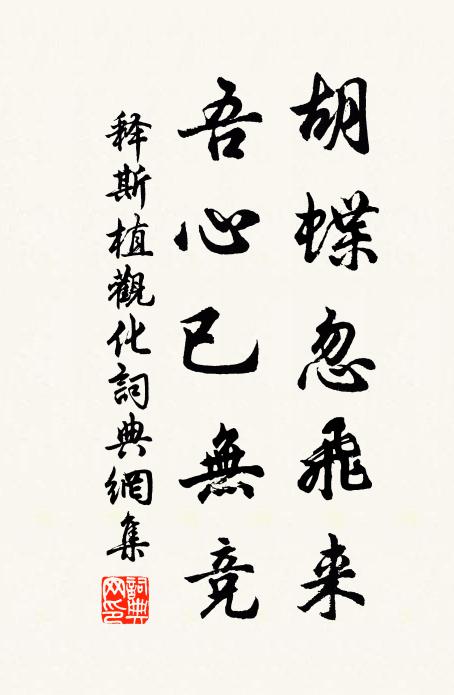 胡蝶忽飛来
吾心已無竞
释斯植觀化詞典網集
詞典网印